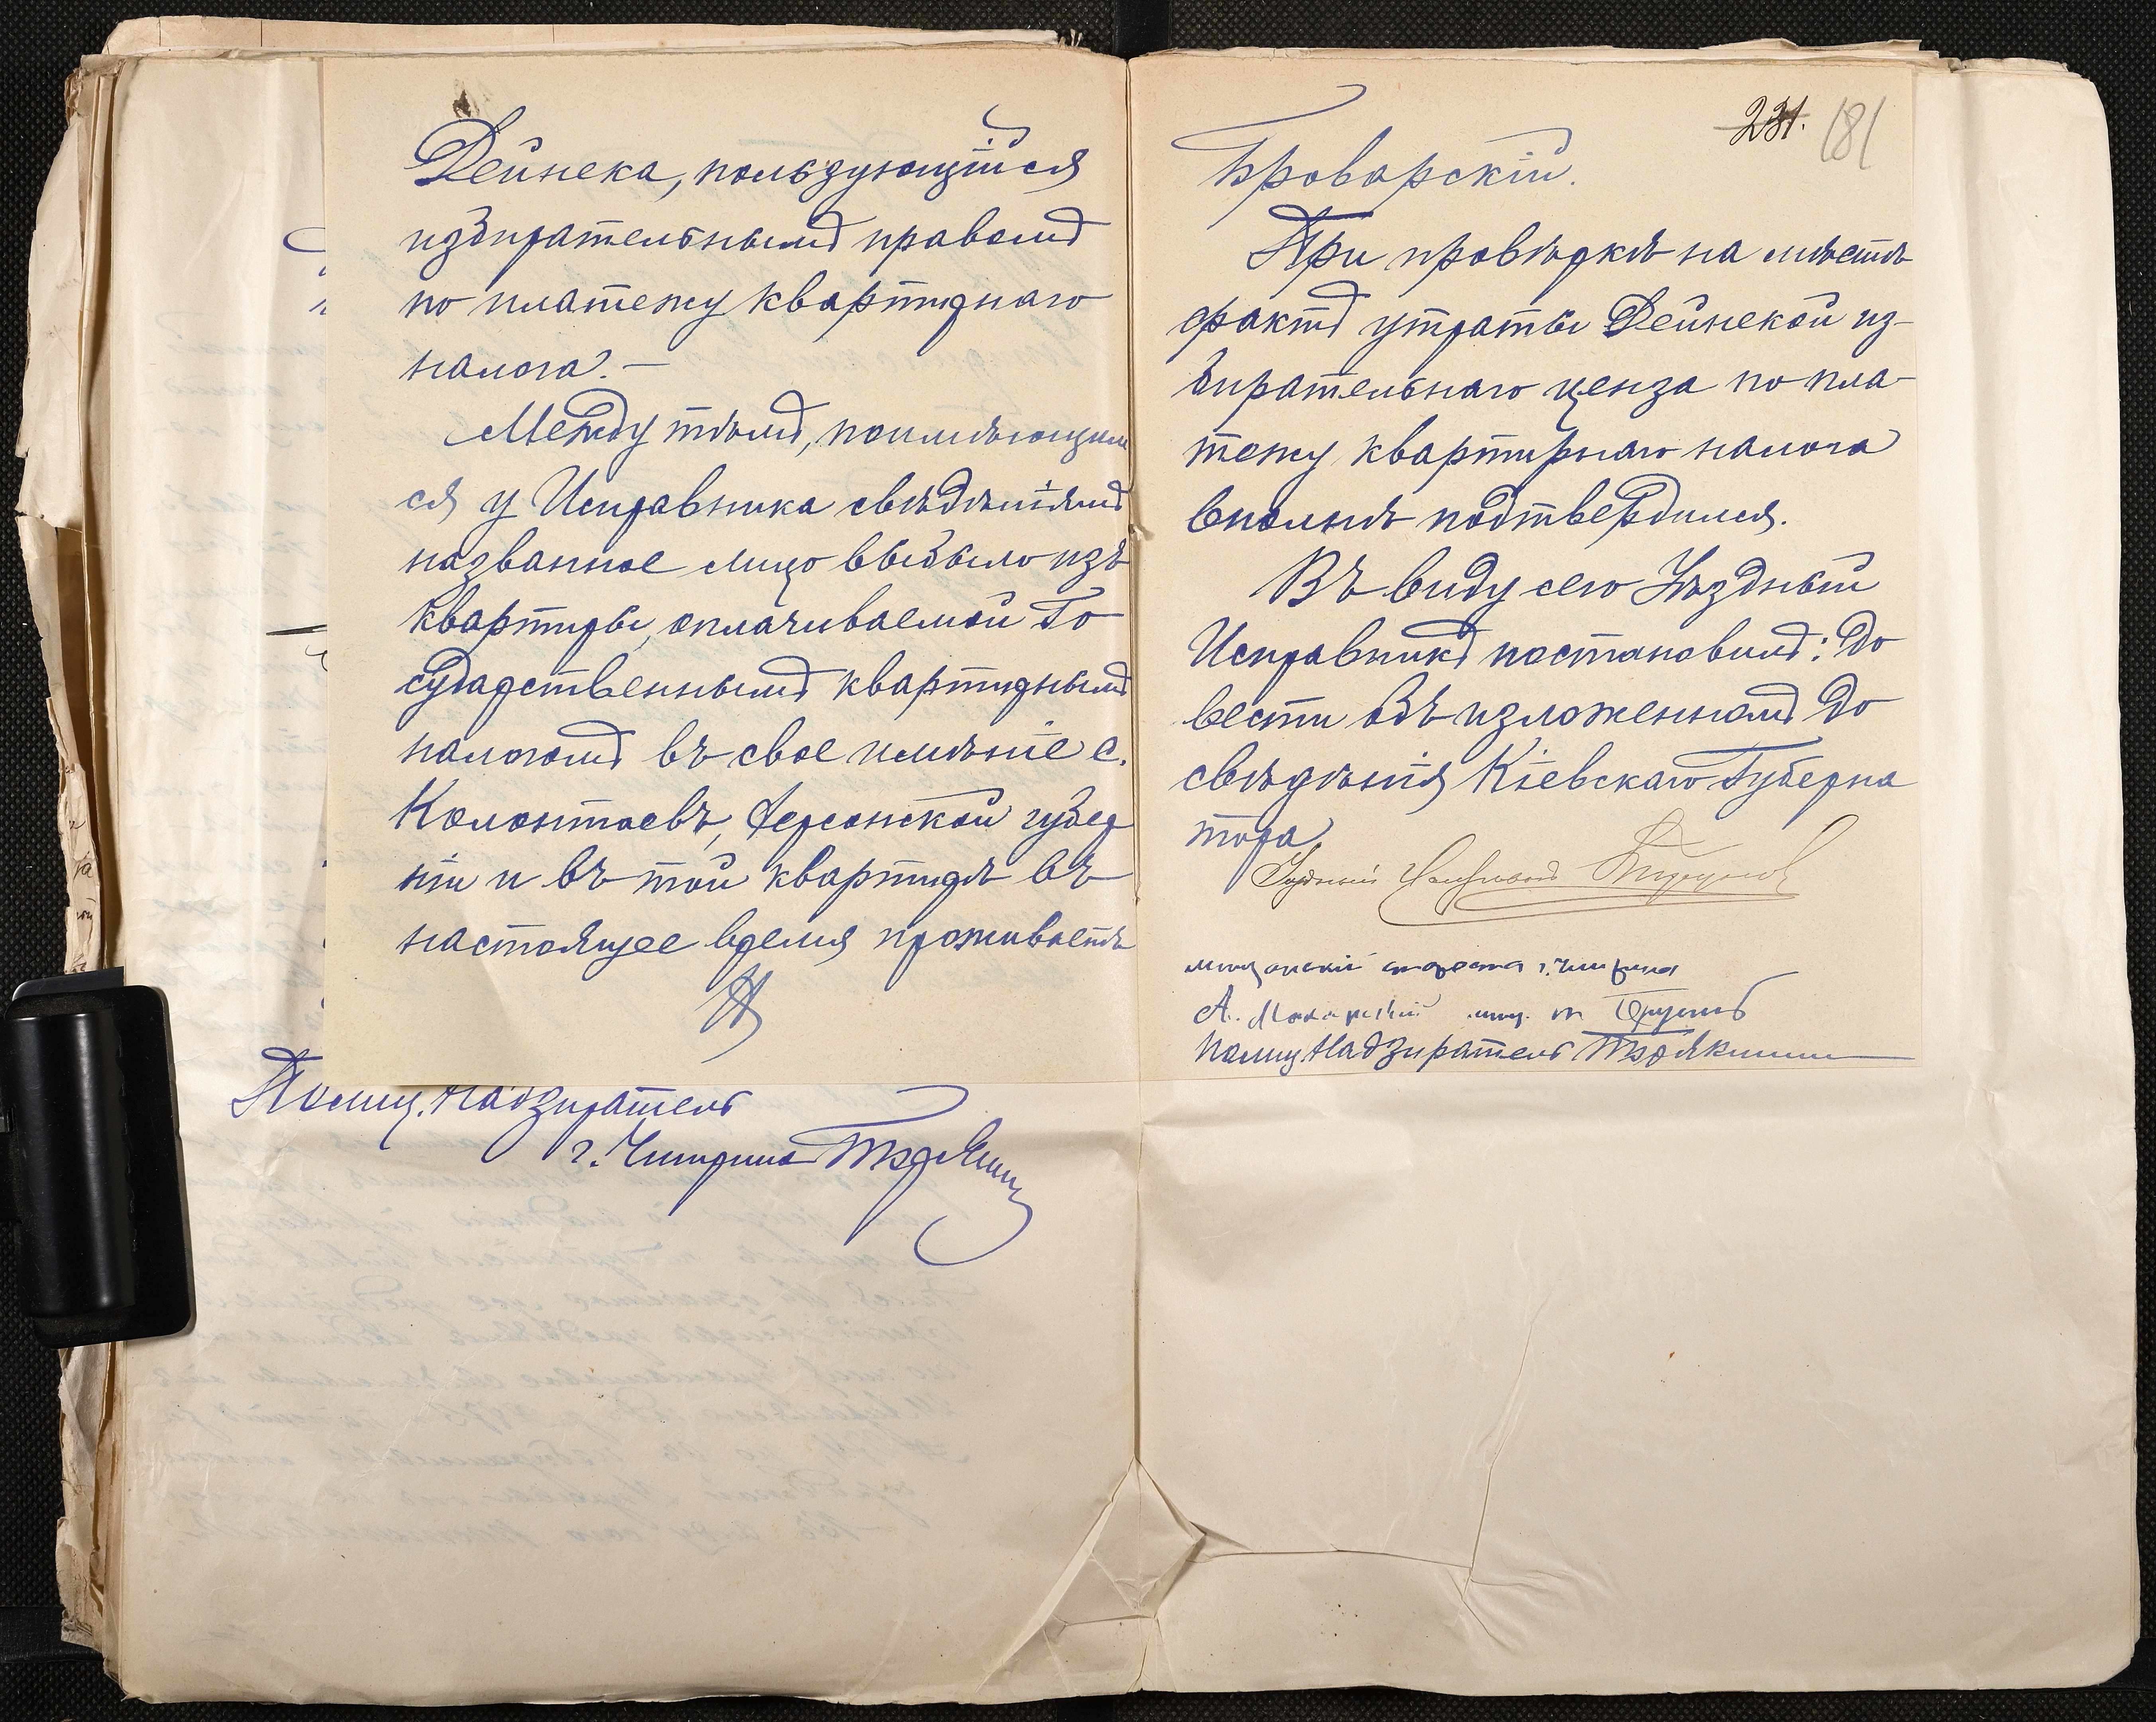 Дейнека, пользующійся
избирательнымъ правомъ
по платежу квартирнаго
налога. —
Между тѣмъ, по имѣющим
ся у Исправника свѣдѣніямъ
названное лицо выбыло изъ
квартиры, оплачиваемой Го
сударственнымъ квартирнымъ
налогомъ въ свое имѣніе с.
Колонтаевъ, Херсонской губер
ніи и въ той квартирѣ въ
настоящее время проживаетъ
Полиц. Надзиратель
г. Чигирина
231. 181
Броварскій.
При провѣркѣ на мѣстѣ
фактъ утраты Дейнекой из-
бирательнаго ценза по пла-
тежу квартирнаго налога
вполнѣ подтвердился.
Въ виду сего Уѣздный
Исправникъ постановилъ: до
вести объ изложенномъ до
свѣдѣнія Кіевскаго Губерна
тора
Уѣздный Исправникъ
мѣщанскій староста г. Чигирина
А.
Полиц Надзиратель